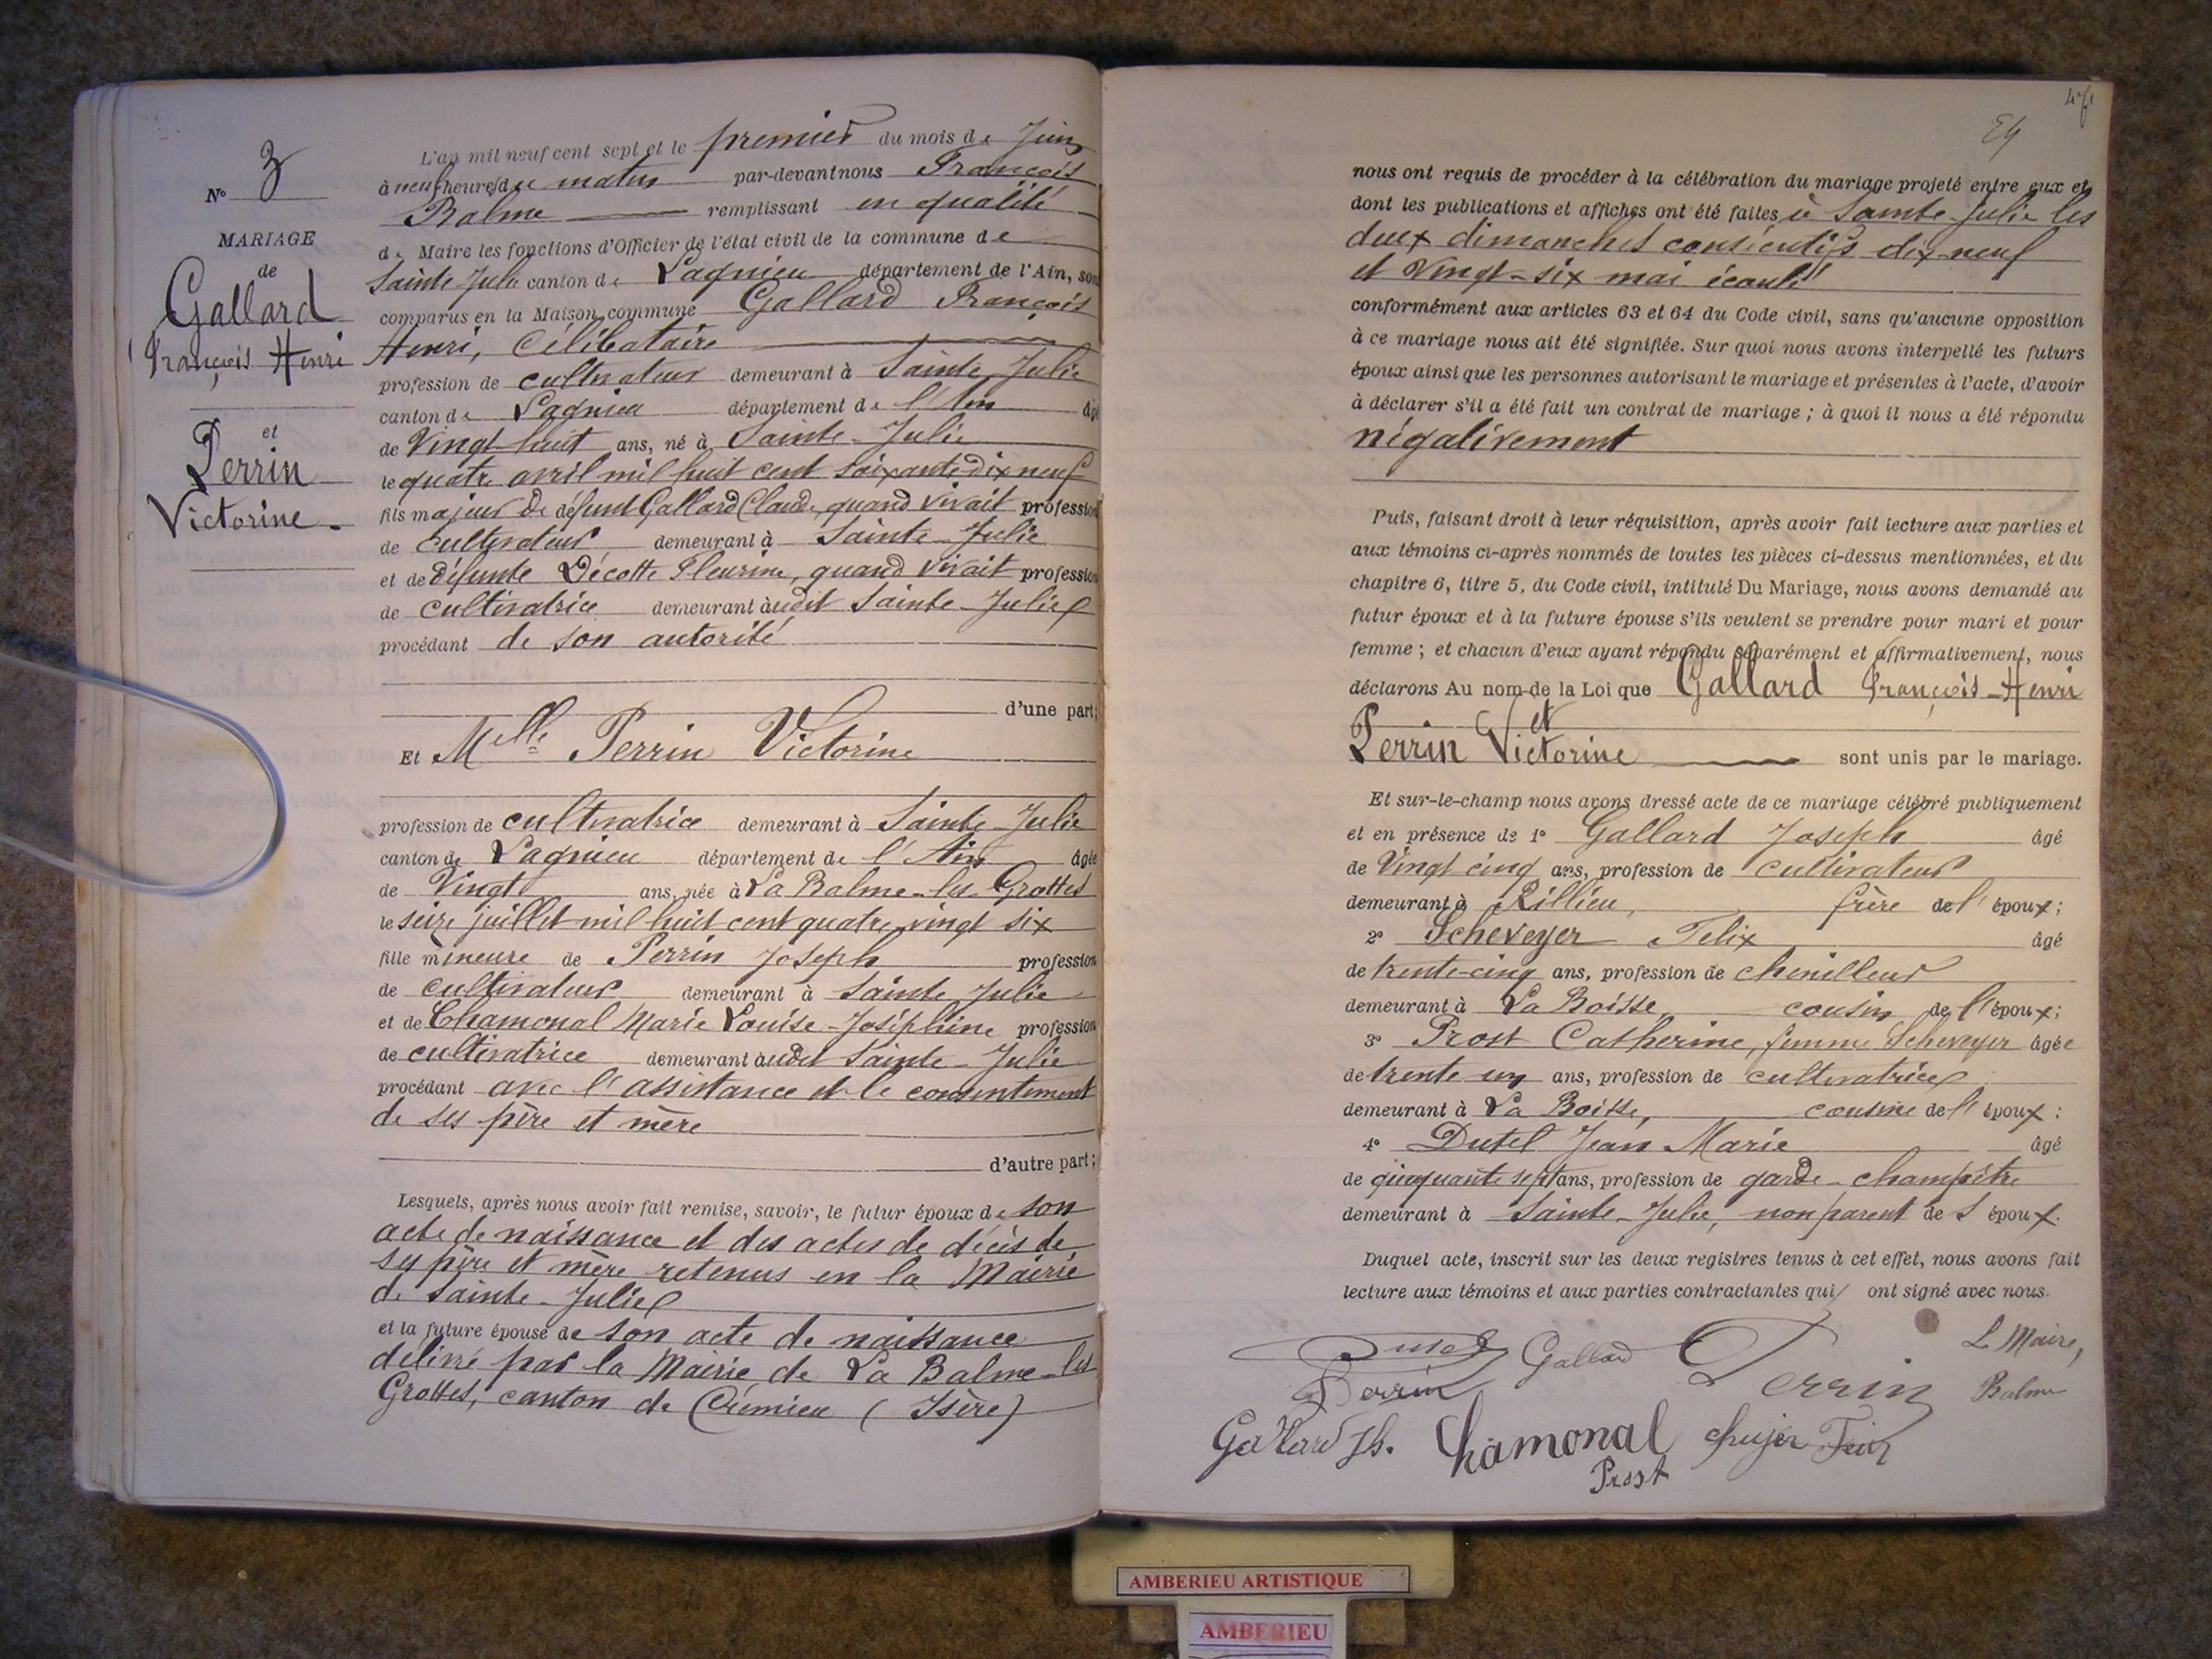 N° 3
MARIAGE
de
Gallard
François Henri
et
Perrin
Victorine
L'an mil neuf cent sept et le premier du mois de Juin
à neuf heures du matin par-devant nous François
Balme remplissant en qualité
de Maire les fonctions d'Officier de l'état civil de la commune de
Sainte Julie canton de Lagnieu département de l'Ain, son
comparus en la Maison commune Gallard François
Henri, Célibataire
profession de cultivateur demeurant à Sainte Julie
canton de Lagnieu département de l'Ain âgé
de Vingt-huit ans, né à Sainte-Julie
le quatre avril mil huit cent soixante dix neuf
fils majeur de défunt Gallard Claude, quand vivait profession
de cultivateur demeurant à Sainte-Julie
et de défunte Décotte Fleurine, quand vivait profession
de cultivatrice demeurant audit Sainte-Julie
procédant de son autorité
d'une part;
Et Melle Perrin Victorine
profession de cultivatrice demeurant à Sainte-Julie
canton de Lagnieu département de l'Ain âgée
de Vingt ans, née à La Balme-les-Grottes
le seize juillet mil huit cent quatre vingt six
fille mineure de Perrin Joseph profession
de cultivateur demeurant à Sainte Julie
et de Chamonal Marie Louise-Joséphine profession
de cultivatrice demeurant audit Sainte-Julie
procédant avec l'assistance et le consentement
de ses père et mère
d'autre part;
Lesquels, après nous avoir fait remise, savoir, le futur époux de son
acte de naissance et des actes de décès de
ses père et mère retenus en la Mairie
de Sainte-Julie
et la future épouse de son acte de naissance
délivré par la Mairie de La Balme-les
Grottes, canton de Crémieu (Isère)
nous ont requis de procéder à la célébration du mariage projeté entre eux et
dont les publications et affiches ont été faites à Sainte-Julie les
deux dimanches consécutifs dix-neuf
et Vingt-six mai écoulé
conformément aux articles 63 et 64 du Code civil, sans qu'aucune opposition
à ce mariage nous ait été signifiée. Sur quoi nous avons interpellé les futurs
époux ainsi que les personnes autorisant le mariage et présentes à l'acte, d'avoir
à déclarer s'il a été fait un contrat de mariage ; à quoi il nous a été répondu
négativement
Puis, faisant droit à leur réquisition, après avoir fait lecture aux parties et
aux témoins ci-après nommés de toutes les pièces ci-dessus mentionnées, et du
chapitre 6, titre 5, du Code civil, intitulé Du Mariage, nous avons demandé au
futur époux et à la future épouse s'ils veulent se prendre pour mari et pour
femme ; et chacun d'eux ayant répondu séparément et affirmativement, nous
déclarons Au nom de la Loi que Gallard François-Henri
et
Perrin Victorine sont unis par le mariage.
Et sur-le-champ nous avons dressé acte de ce mariage célébré publiquement
et en présence de 1° Gallard Joseph âgé
de Vingt cinq ans, profession de cultivateur
demeurant à Rillieu, frère de l'époux;
2° Scheveyer Felix âgé
de trente-cinq ans, profession de chenilleur
demeurant à La Boisse, cousin de l'époux;
3° Prost Catherine, femme Scheveyer âgée
de trente un ans, profession de cultivatrice
demeurant à La Boisse, cousine de l'époux:
4° Dutel Jean Marie âgé
de cinquante sept ans, profession de garde-champêtre
demeurant à Sainte-Julie, non parent de l'époux.
Duquel acte, inscrit sur les deux registres tenus à cet effet, nous avons fait
lecture aux témoins et aux parties contractantes qui ont signé avec nous.
Dutel Gallard Perrin Le Maire,
Perrin Balme
Gallard Jh. Chamonal
Prost
AMBERIEU ARTISTIQUE
AMBERIEU